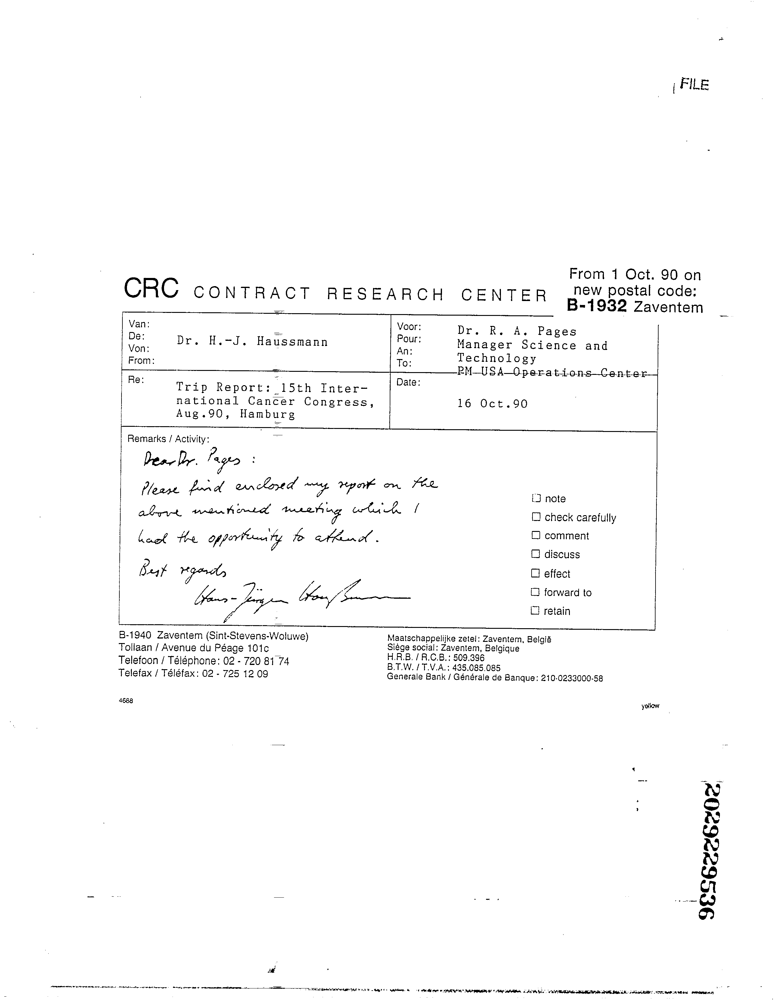 FILE
From 1 Oct. 90 on
new postal code:
B-1932 Zaventem
CRC CONTRACT RESEARCH CENTER
Van:
De:
Von:
From:
Dr. H.-J. Haussmann
Voor:
Pour:
An:
To:
Dr. R. A. Pages
Manager Science and
Technology
PM USA Operations Center
Re:
Trip Report: 15th Inter-
national Cancer Congress,
Aug.90, Hamburg
Date:
16 Oct.90
Remarks / Activity:
Dear Dr. Pages :
Please find enclosed my report on the
above mentioned meeting which I
had the opportunity to attend.
Best regards
Hans-Jürgen Haußmann
note
check carefully
comment
discuss
effect
forward to
retain
B-1940 Zaventem (Sint-Stevens-Woluwe)
Tollaan / Avenue du Péage 101c
Telefoon / Téléphone: 02 - 720 81 74
Telefax / Téléfax: 02 - 725 12 09
Maatschappelijke zetel: Zaventem, België
Siège social: Zaventem, Belgique
H.R.B. / R.C.B.: 509.396
B.T.W. / T.V.A.: 435.085.085
Generale Bank / Générale de Banque: 210-0233000-58
4668
yellow
2029229536